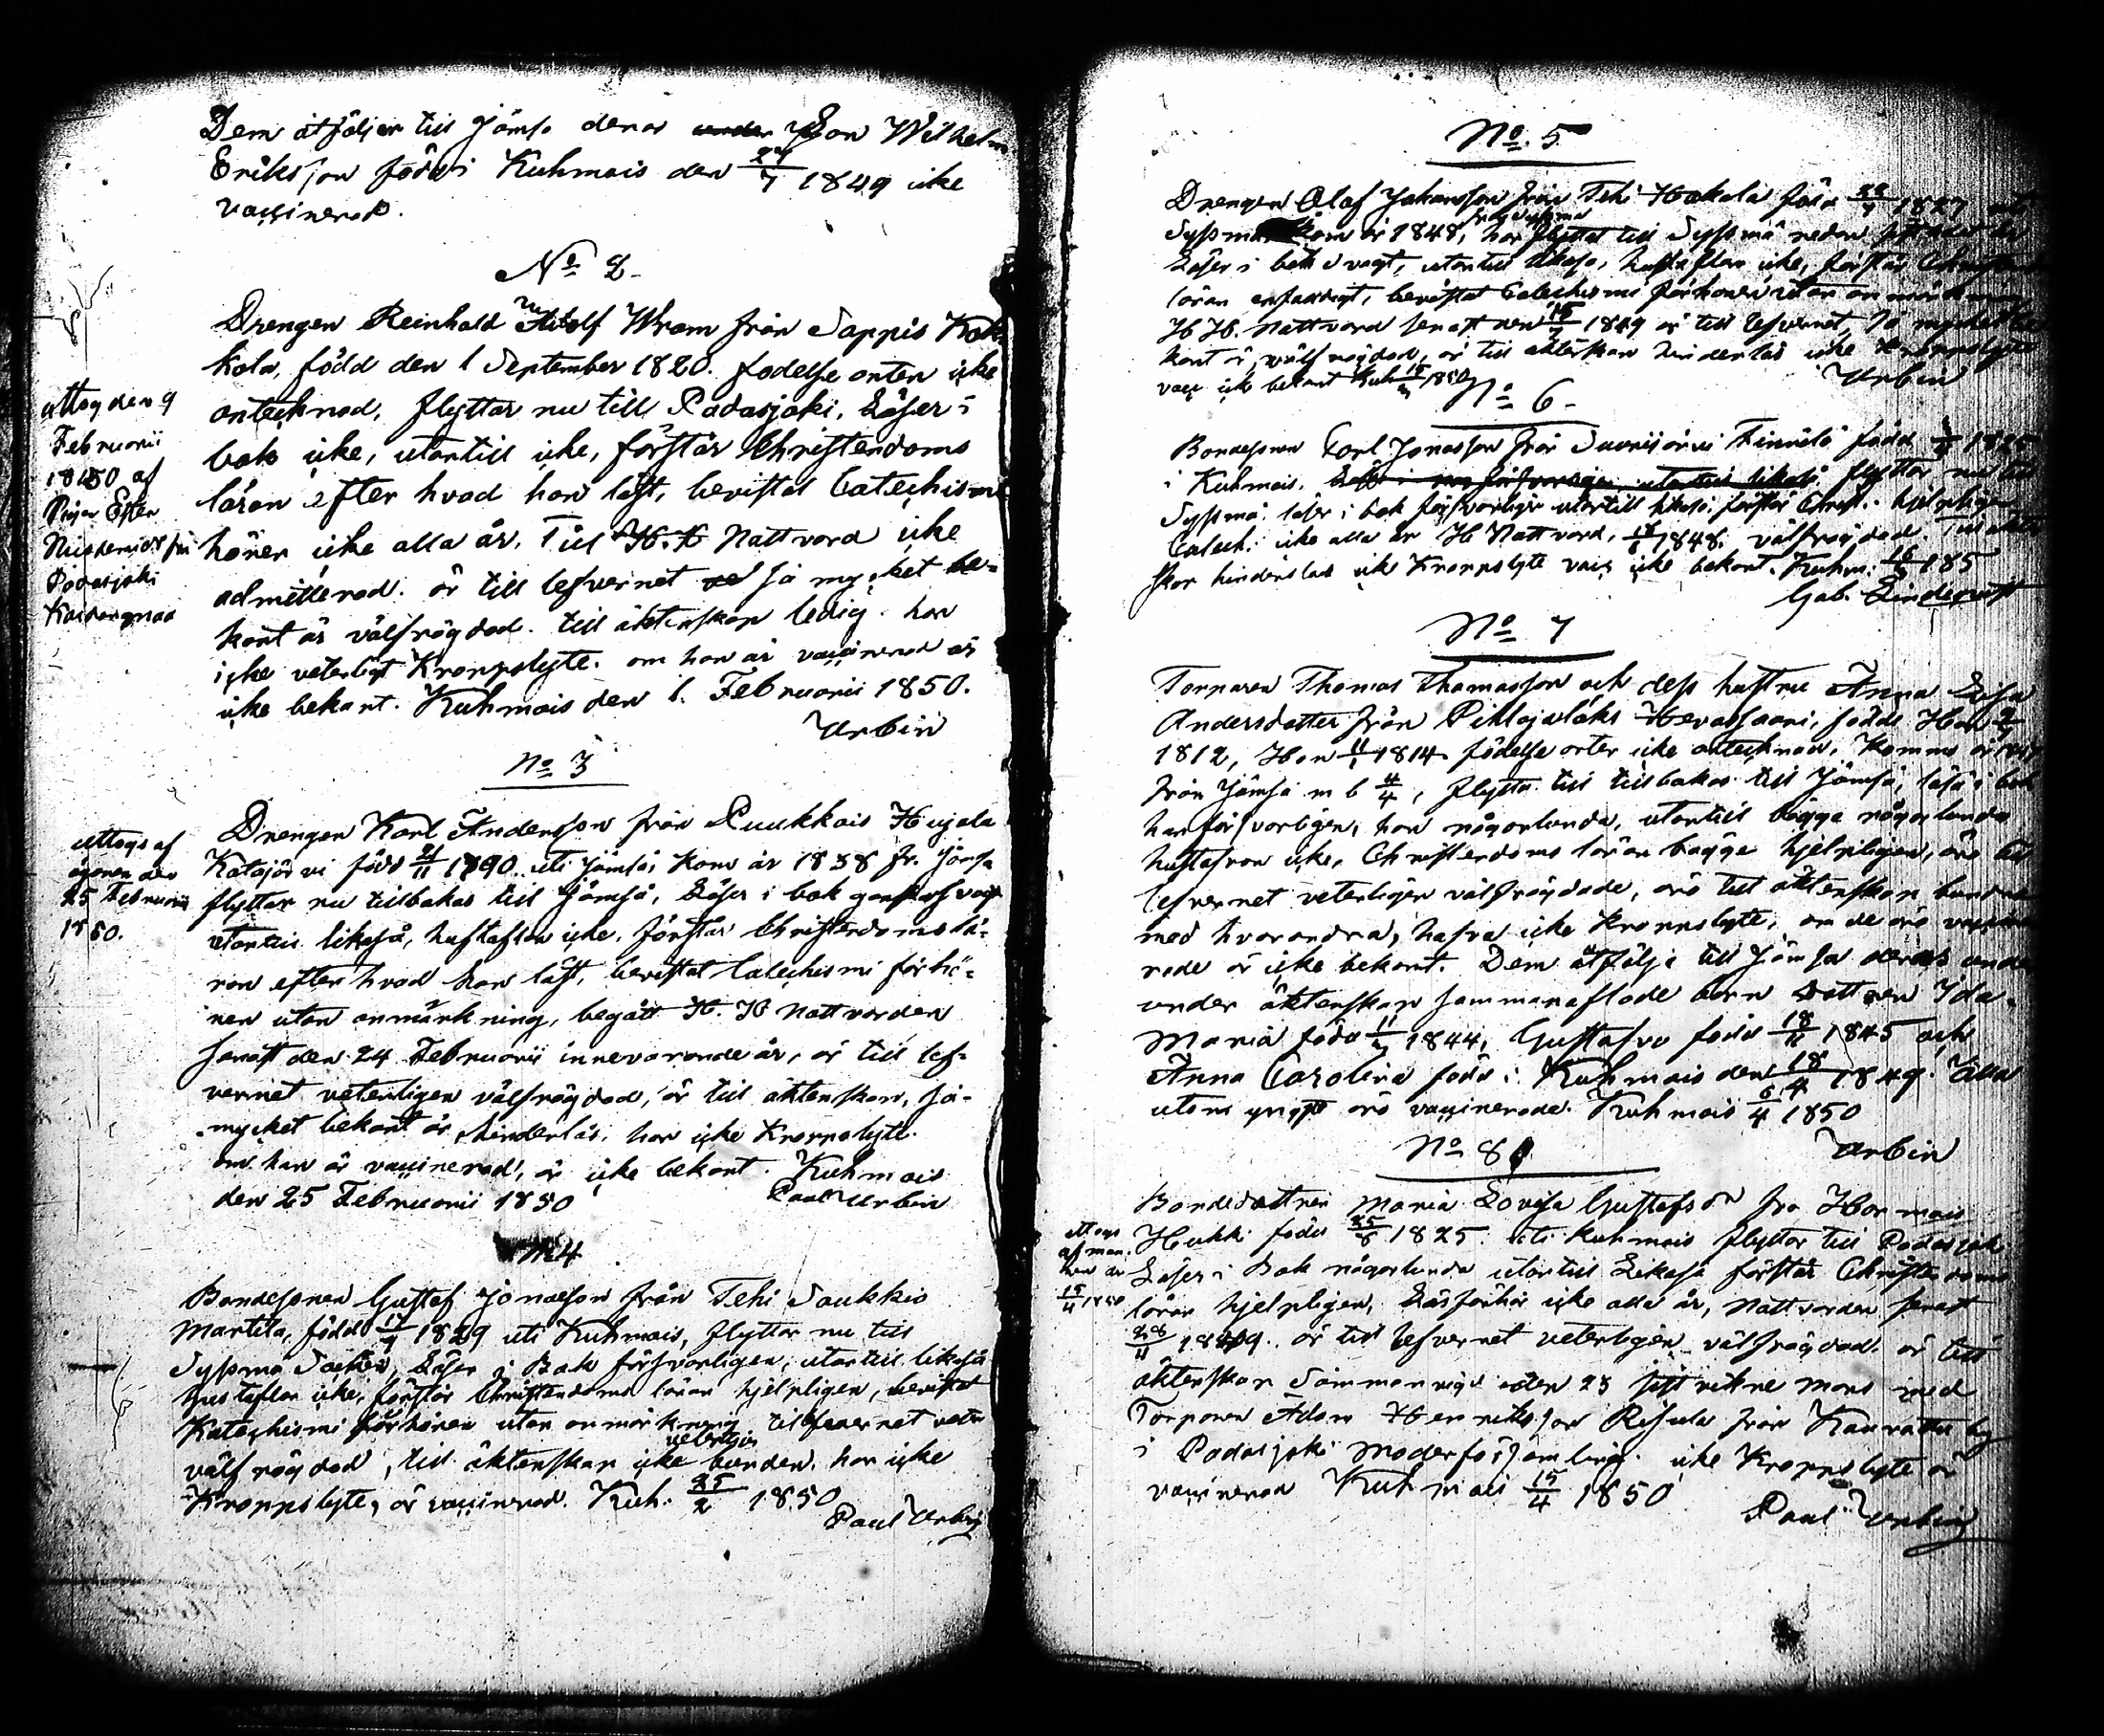 Dem åtföljer till Jämsä deras Son Wilhelm
Eriksson född i Kuhmois den 27/7 1849 icke
vaccinerad.
No 2.
Drengen Reinhold Adolf Wram från Sappis Kok
kola, född den 1 September 1820. födelse orten icke
antecknad, flyttar nu till Padasjoki. Läser i
bok icke, utantill icke, förstår Christendoms
läran efter hvad han läst, bevistat Catechismi
hören icke alla år. Till H. H. Nattvard icke
admitterad. är till lefvernet så mycket be-
kant är välfrägdad. till äktenskap ledig. har
icke veterligt Kroppslyte. om han är vaccinerad är
icke bekant. Kuhmois den 1. Februarii 1850.
Urbin
uttog den 9
Februarii
1850 af
Padasjoki
No 3
Drengen Karl Andersson från Puukkois Hujala
Katajärvi född 21/11 1890 uti Jämsä, Kom år 1838 fr. Jämsä
flyttar nu tillbakas till Jämsä, Läser i bok
utantill likaså, hustaflan icke. förstår Christendoms lä-
ran efter hvad han läst, bevistat Catechismi förhö-
ren utan anmärkning, begått H. H. Nattvarden
senast den 24 Februarii innevarande år, är till lef-
vernet veterligen välfrägdad, är till äktenskap, så-
mycket bekant är, hinderlös. har icke Kroppslyte.
om han är vaccinerad, är icke bekant. Kuhmois
den 25 Februarii 1850 Paul Urbin
uttogs af
ägaren den
25 Februarii
1850.
No 4
Bondesonen Gustaf Jonasson från Tehi Saukkio
Marttila, född 17/7 1829 uti Kuhmois, flyttar nu till
Sysmä Socken, Läser i Bok försvarligen, utantill likaså
hustaflan icke, förstår Christendoms läran hjelpligen, bevistat
Katechismi förhören utan anmärkning till lefvernet
välfrägdad, till äktenskap icke veterligen bunden. har icke
Kroppslyte, är vaccinerad. Kuh. 25/2 1850
Paul Urbin
No. 5
Drengen Olof Johansson från Tehi Hakala född 1827
Sysmä Kom år 1848, har flyttat till Sysmä redan
Läser i bok svagt, utantill likaså, hustaflan icke, förstår
läran enfaldigt, bevistat Catechismi förhören utan anmärkning
H H. Nattvard senast den 1849 är till lefvernet, så mycket be
kant är, välfrägdad, är till äktenskap hinderlös icke Kroppslyte
vacc icke bekant Kuh 1850
Urbin
No 6
Bondesonen Carl Jonasson från Saarijärvi Finnilä född 1825
i Kuhmois. flyttar nu till
Sysmä. läser i bok försvarligen utantill likaså. förstår Christ. hjelpligen
Catech: icke alla år H Nattvard, 1848. välfrägdad. Till äkten
skap hinderslös icke Kroppslyte vacc icke bekant. Kuhm: 185
Gab. Lindeqvist
No 7
Torparen Thomas Thomasson och dess hustru Anna Lisa
Andersdotter från Pihlajalaks Hevossaari, födde Han
1812, Hon 11/1 1814 födelse orter icke antecknad, Komne år 1847
från Jämsä m b 4/4, flytta till tillbakas till Jämsä, läsa i bok
han försvarligen, hon någorlunda, utantill bägge någorlunda
hustaflan icke, Christendoms läran bägge hjelpligen, äro till
lefvernet veterligen välfrägdade, äro till äktenskap bundne
med hvarandra, hafva icke Kroppslyte, om de äro vaccine
rade är icke bekant. Dem åtfölja till Jämsä deras
under äktenskap sammanaflade barn Dottren Ida
Maria född 11/3 1844, Gustafva född 18/11 1845 och
Anna Carolina född i Kuhmois den 18/4 1849. Alla
utom yngst äro vaccinerade. Kuhmois 6/4 1850
Urbin
No 8
Bondedottren Maria Lovisa Gustafsdr fr. Harmois
Hukki född 25/8 1825. uti Kuhmois flyttar till Padasjoki
Läser i Bok någorlunda utantill Likaså förstår Christendoms
läran hjelpligen, Läsförhör icke alla år, Nattvarden senast
28/11 1849. är till lefvernet veterligen välfrägdad. är till
äktenskap Sammanvigd den 25 sistvikne Mars med
Torparen Adam Henriksson Risula från Kaurattu by
i Padasjoki Moderförsamling. icke Kroppslyte är
vaccinerad Kuhmois 15/4 1850
Paul Urbin
uttogs
af man
nen den
15/4 1850